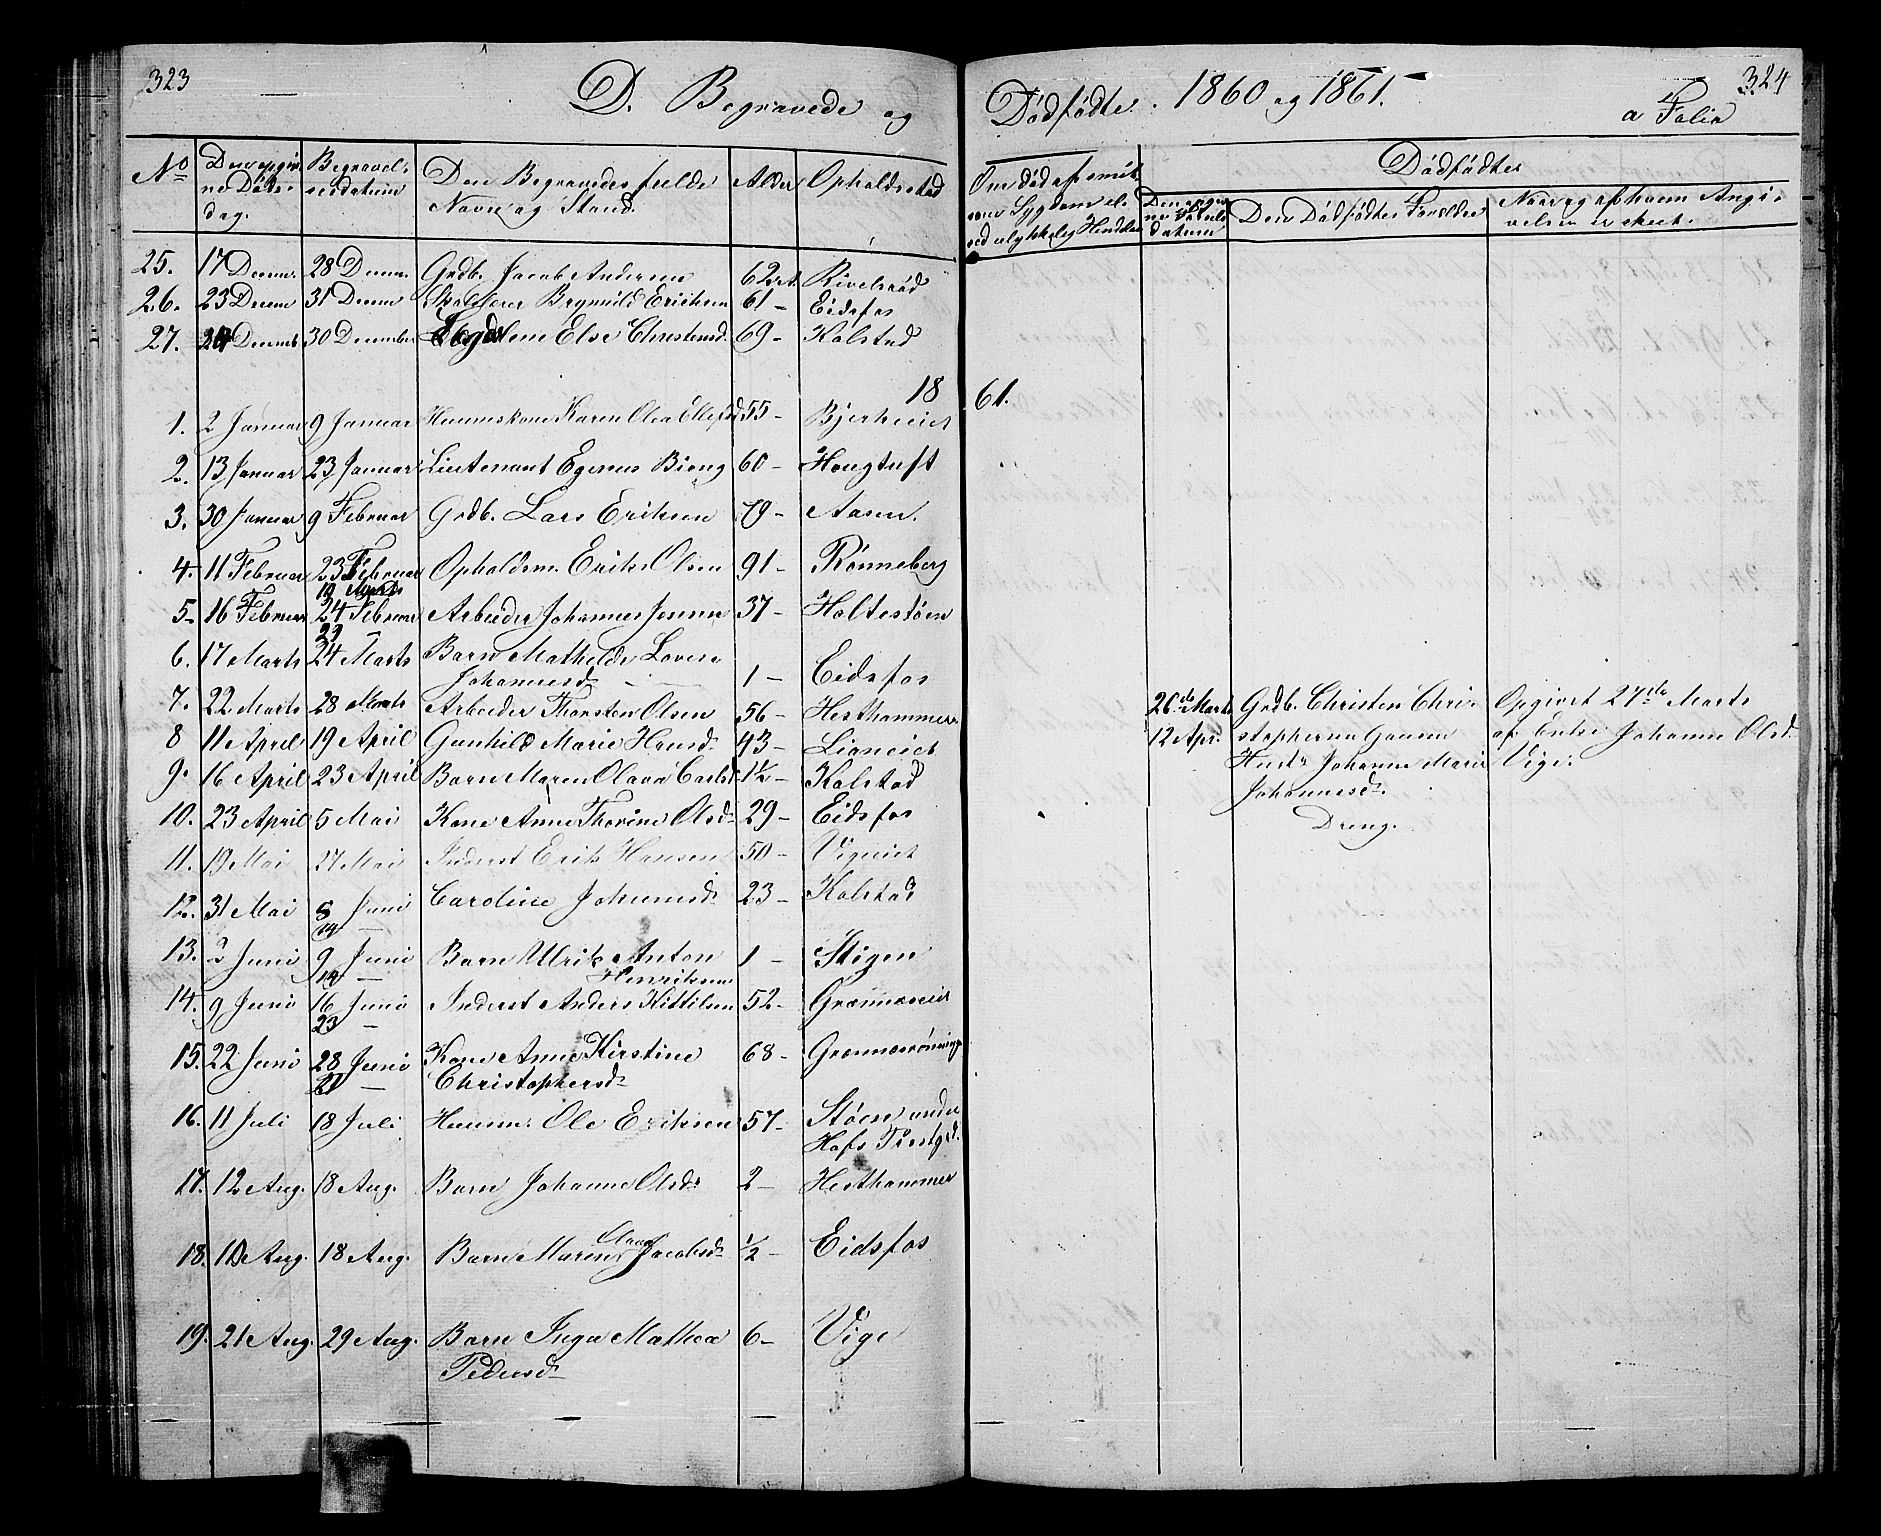 323
D. Begravede og
Dödfödte. 1860 og 1861.
324
a Folio
No
Den opgivne Døds-dag.
Begravelsesdatum
Den Begravedes fulde Navn og Stand.
Alder
Opholdssted
Om død af smitsom Sygdom el. ved ulykkelig Hændelse
Dødfødte
Datum
Den Dödfödtes Forældre
Naar og af hvem Angivelsen er skeet.
25. 17 Decem. 28 Decem. Grdb. Jacob Andersen 62 Rivelsröd
26. 23 Decem 31 Decem Brynild Eriksen 61 - Eidsfos
27. Decemb 30 December Else Christensd. 69 - Kolstad
18 61.
1. 2 Januar 9 Januar Huusmkone Karen Olea Ellefsd 55 - Bjerkeeiet
2. 13 Januar 23 Januar Lieutenant Egenus Biong 60 - Hougtuft
3. 30 Januar 9 Februar Grdb. Lars Eriksen 79 - Aasen.
4. 11 Februar 23 Februar Opholdsm. Erik Olsen 91 - Rönneberg
10 Marts
5 - 16 Februar 24 Februar Arbeider Johannes Jensen 37 - Holtestöen
23 -
6. 17 Marts 24 Marts Barn Mathilde Lovise
Johannesd 1 - Eidsfos
7. 22 Marts 28 Marts Arbeider Thorsten Olsen 56 - Hesthammer
8 11 April 19 April Gunhild Marie Hansd. 43 - Lianeiet
9. 16 April 23 April Barn Maren Olava Carlsd. 1½ - Kolstad
10. 23 April 5 Mai Kone Anne Thorine Olsd. 29 - Eidsfos
11. 19 Mai 27 Mai Inderst Erik Hansen 50 - Vigeeiet
12. 31 Mai 8 Juni Caroline Johannesd. 23 - Kolstad
14 -
13. 2 Juni 9 Juni Barn Ulrik Anton 1 - Stigen
14 - Henriksen
14. 9 Juni 16 Juni Inderst Anders Kittilsen 52 - Grennæseiet
23 -
15. 22 Juni 28 Juni Kone Anne Kirstine 68 - Grennesrönningen
Christophersd.
16. 11 Juli 18 Juli Huusm. Ole Eriksen 57 - Stöen under
Hofs Præstgrd.
17. 12 Aug. 18 Aug. Barn Johanne Olsd. 2 - Hesthammer
Olava
18. 10 Aug. 18 Aug. Barn Maren Jacobsd. 1/2 - Eidsfos
19. 21 Aug. 29 Aug. Barn Inga Mathea 6 - Vige
Pedersd.
26de Marts Grdb. Christen Chri- Opgivet 27de Marts
12 Apr. stophersen Hustr. Johanne Marie Johannesd. af Enke Johanne Olsd. Vige.
Dreng.